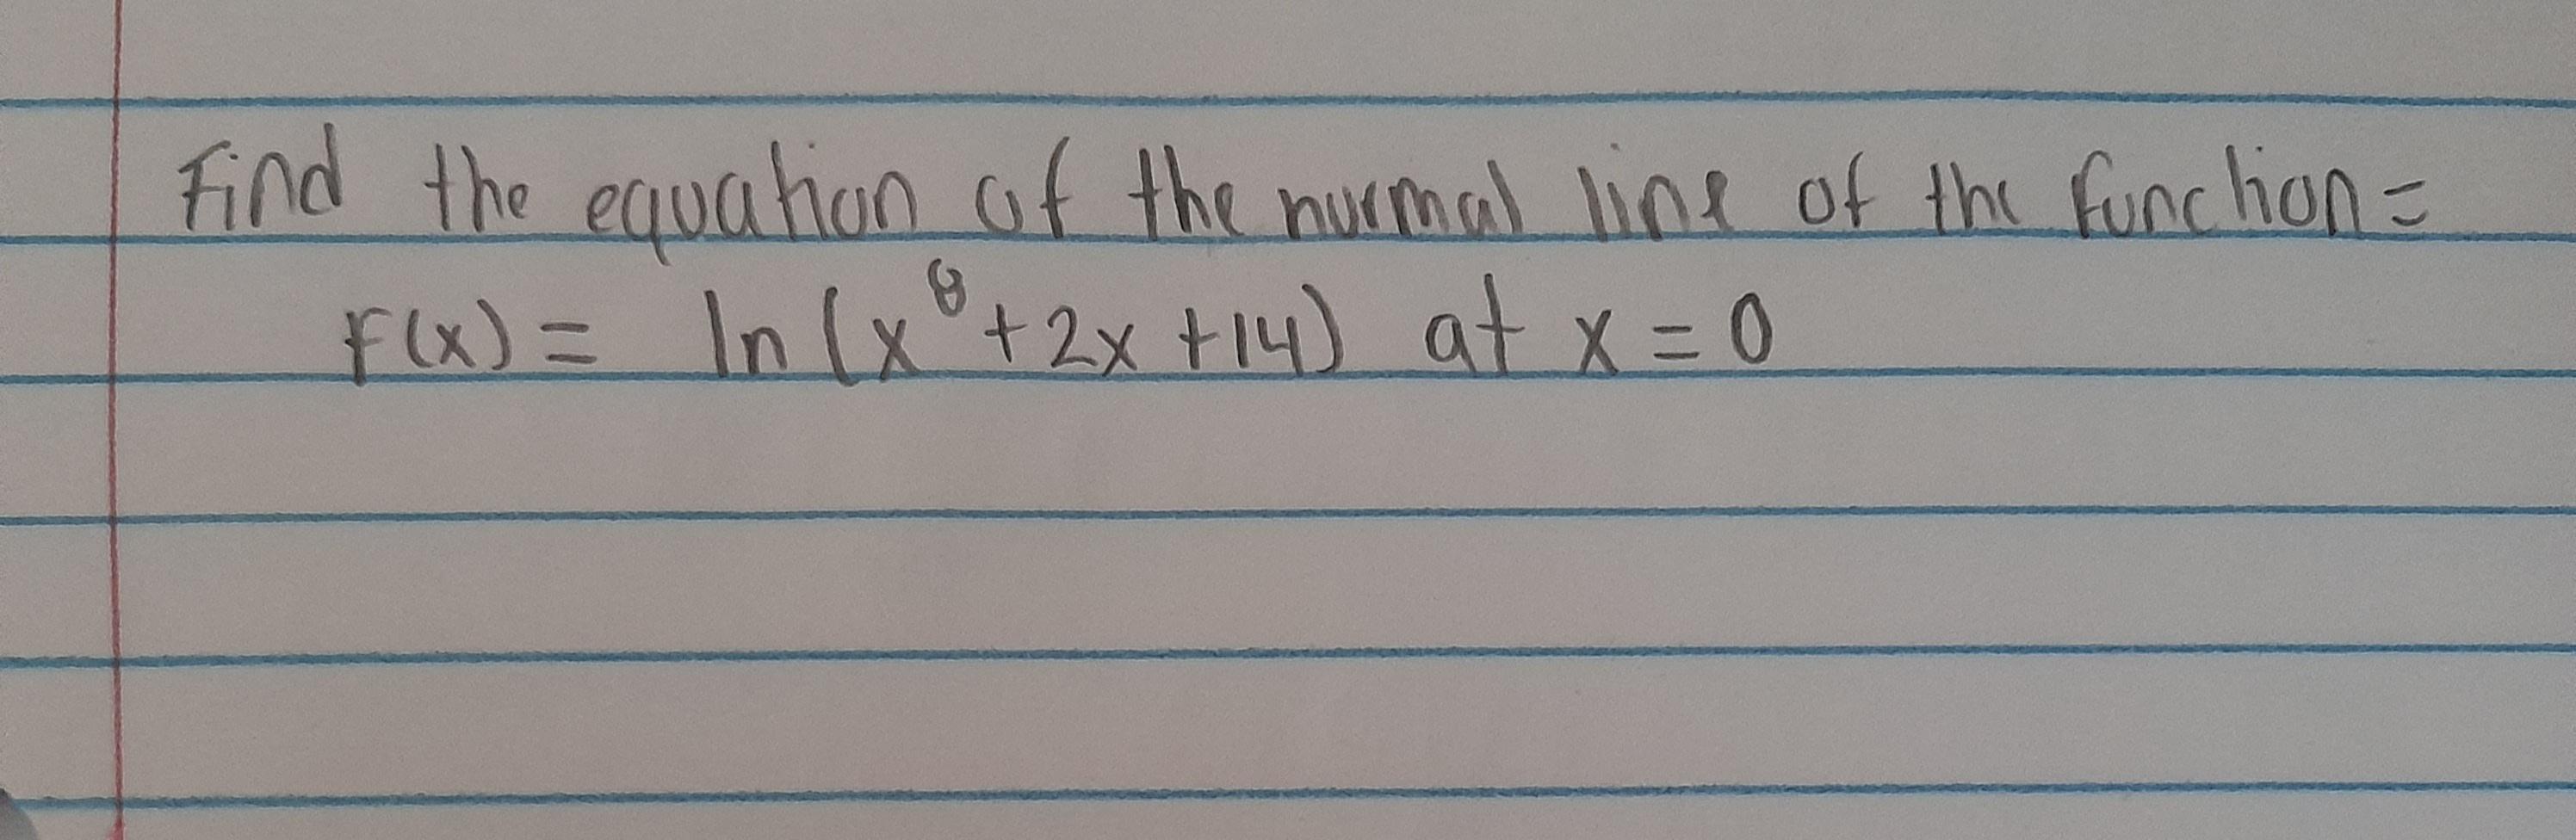 Find the equation of the normal line of the function=
F(x) = ln (x⁸ + 2x + 14) at x = 0